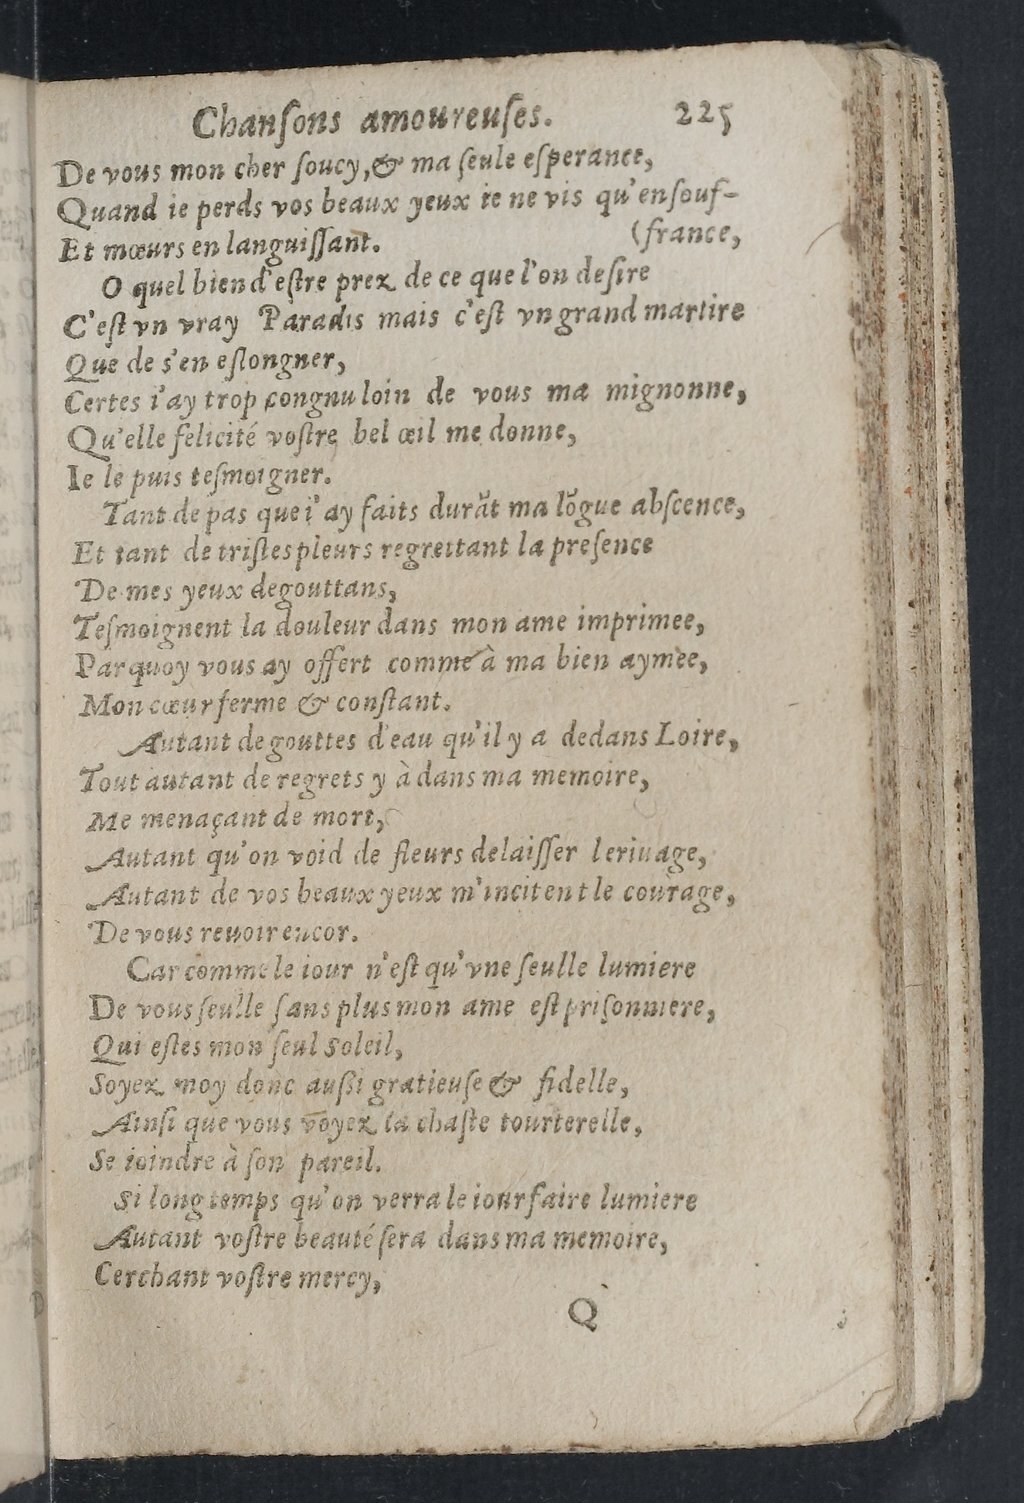 Chanſons amoureuſes. 225
De vous mon cher ſoucy, & ma ſeule eſperance,
Quand ie perds vos beaux yeux ie ne vis qu'en ſouf-
Et mœurs en languiſſant. (france,
O quel bien d'eſtre prez de ce que l'on deſire
C'eſt vn vray Paradis mais c'eſt vn grand martire
Que de s'en eſlongner,
Certes i'ay trop congnu loin de vous ma mignonne,
Qu'elle felicité voſtre bel œil me donne,
Ie le puis teſmoigner.
Tant de pas que i'ay faits durãt ma lõgue abſcence,
Et tant de triſtes pleurs regrettant la preſence
De mes yeux degouttans,
Teſmoignent la douleur dans mon ame imprimee,
Parquoy vous ay offert comme à ma bien aymee,
Mon cœur ferme & conſtant.
Autant de gouttes d'eau qu'il y a dedans Loire,
Tout autant de regrets y à dans ma memoire,
Me menaçant de mort,
Autant qu'on void de fleurs delaiſſer le riuage,
Autant de vos beaux yeux m'incitent le courage,
De vous reuoir encor.
Car comme le iour n'eſt qu'vne ſeulle lumiere
De vous ſeulle ſans plus mon ame eſt priſonniere,
Qui eſtes mon ſeul Soleil,
Soyez moy donc auſſi gratieuſe & fidelle,
Ainſi que vous voyez la chaſte tourterelle,
Se ioindre à ſon pareil.
Si long temps qu'on verra le iour faire lumiere
Autant voſtre beauté ſera dans ma memoire,
Cerchant voſtre mercy,
Q